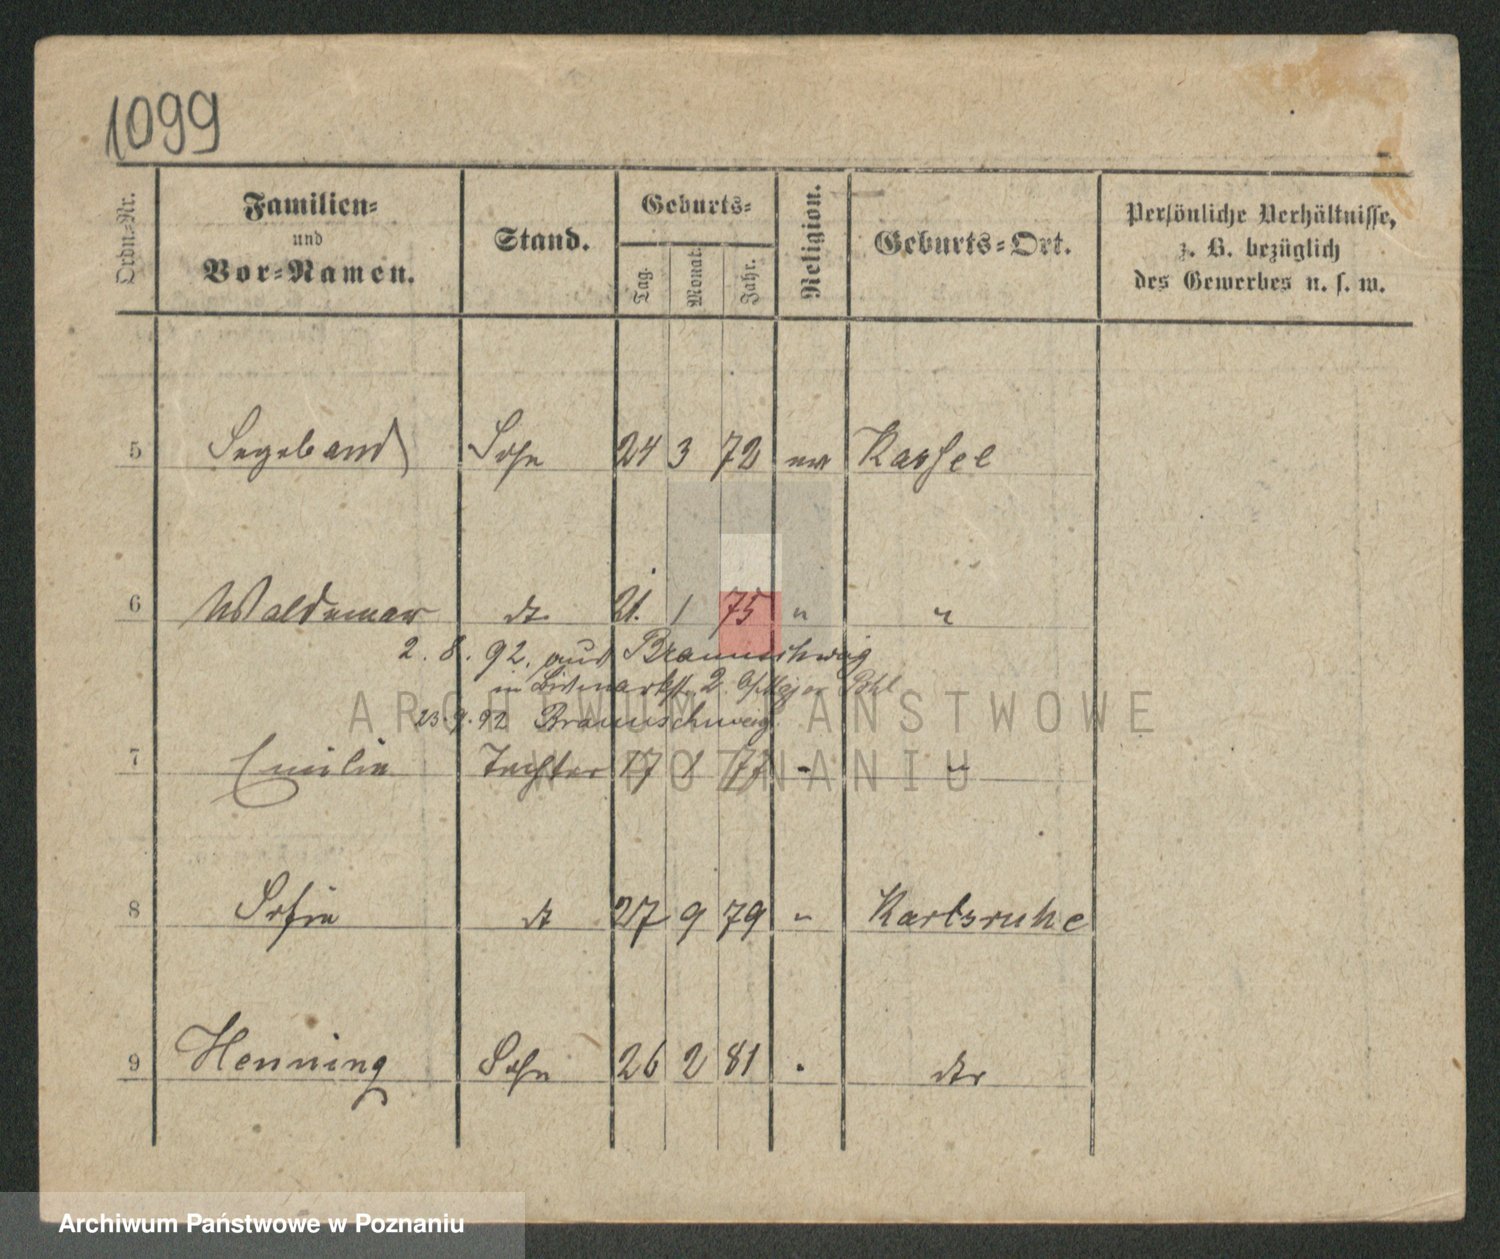 1099
Ordn=Nr.
Familien=
und
Vor=Namen.
Stand.
Geburts=
Tag.
Monat.
Jahr.
Religion.
Geburts=Ort.
Persönliche Verhältnisse,
z. B. bezüglich
des Gewerbes u. s. w.
5 Segeband Sohn 24 3 72 ev Kassel
6 Waldemar dt. 21. 1 75 " "
2. 8. 92. aus Braunschweig
in Bismarkstr. 2. b/Major Pohl
23. 9. 92 Braunschweig
7 Emilie Tochter 17 1 77 - "
8 Sofie dt 27 9 79 " Karlsruhe
9 Henning Sohn 26 2 81 . dto
ARCHIWUM PAŃSTWOWE
W POZNANIU
Archiwum Państwowe w Poznaniu